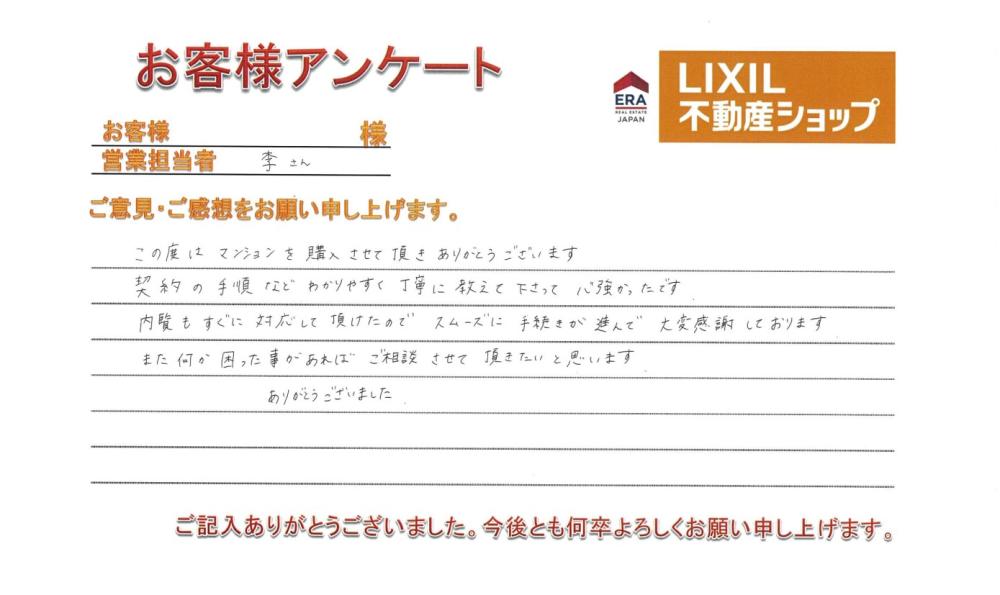 お客様アンケート
ERA
REAL ESTATE
JAPAN
LIXIL
不動産ショップ
お客様 様
営業担当者 李さん
ご意見・ご感想をお願い申し上げます。
この度は マンションを 購入させて頂き ありがとうございます
契約の手順など わかりやすく 丁寧に 教えて下さって 心強かったです
内覧もすぐに 対応して 頂けたので スムーズに 手続きが進んで 大変感謝しております
また何か困った事があれば ご相談させて 頂きたいと思います
ありがとうございました.
ご記入ありがとうございました。今後とも何卒よろしくお願い申し上げます。